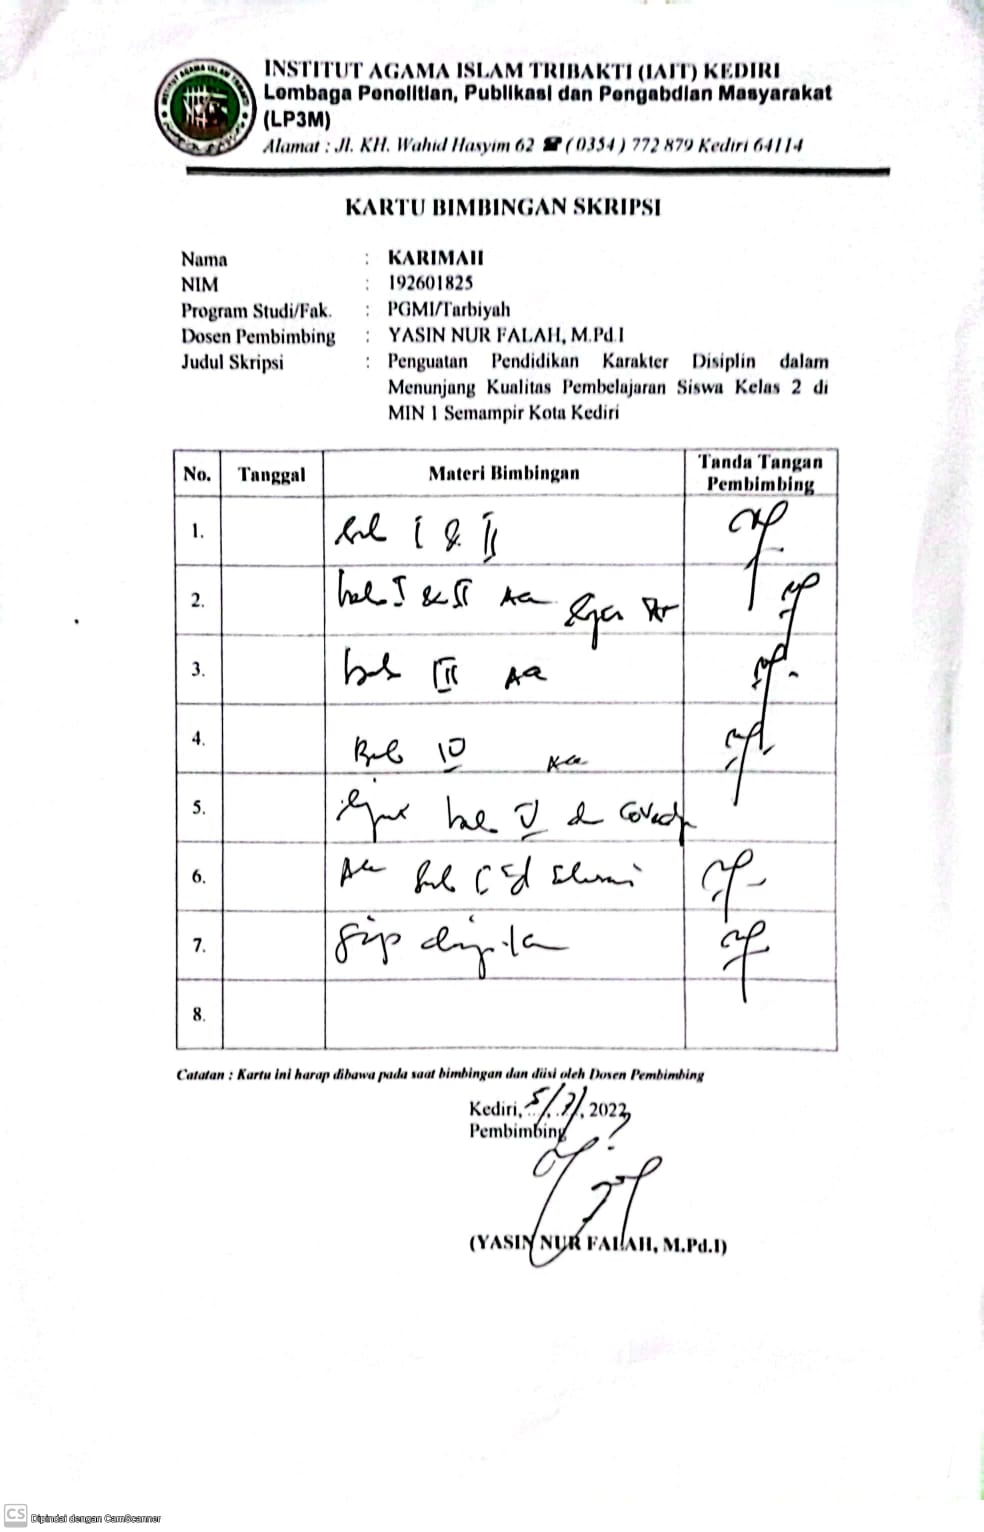 INSTITUT AGAMA ISLAM TRIBAKTI (IAIT) KEDIRI
Lembaga Penelitian, Publikasi dan Pengabdian Masyarakat
(LP3M)
Alamat : Jl. KH. Wahid Hasyim 62 ☎ (0354) 772 879 Kediri 64114
KARTU BIMBINGAN SKRIPSI
Nama : KARIMAH
NIM : 192601825
Program Studi/Fak. : PGMI/Tarbiyah
Dosen Pembimbing : YASIN NUR FALAH, M.Pd.I
Judul Skripsi : Penguatan Pendidikan Karakter Disiplin dalam
Menunjang Kualitas Pembelajaran Siswa Kelas 2 di
MIN 1 Semampir Kota Kediri
No. Tanggal Materi Bimbingan Tanda Tangan
Pembimbing
1. bab I & II
2. bab I & II Acc
3. bab III Acc
4. Bab IV Acc
5. bab V
6. Acc bab
7. Siap
8.
Catatan : Kartu ini harap dibawa pada saat bimbingan dan diisi oleh Dosen Pembimbing
Kediri, 5/7/, 2023
Pembimbing
(YASIN NUR FALAH, M.Pd.I)
CS Dipindai dengan CamScanner